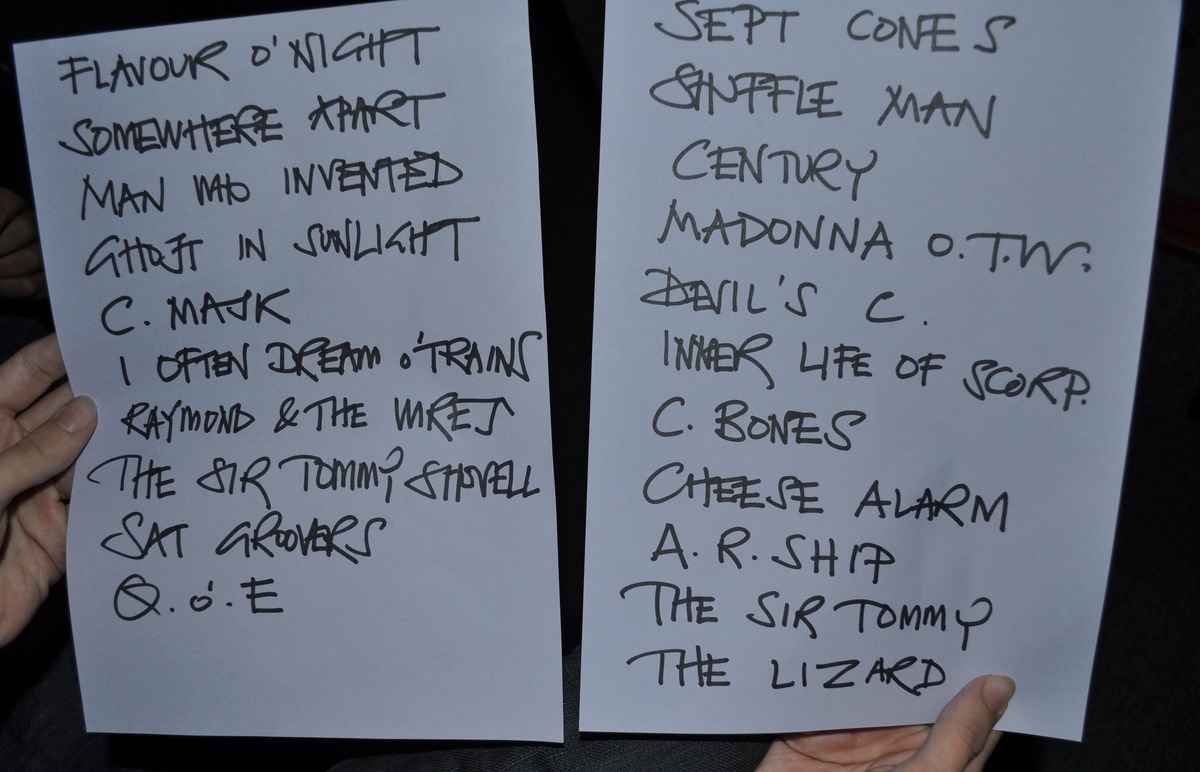 FLAVOUR O'NIGHT
SOMEWHERE APART
MAN WHO INVENTED
GHOST IN SUNLIGHT
C. MASK
I OFTEN DREAM O'TRAINS
RAYMOND & THE WIRES
THE SIR TOMMY SHOVELL
SAT GROOVERS
Q.O'.E
SEPT CONES
SHUFFLE MAN
CENTURY
MADONNA O.T.W.
DEVIL'S C.
INNER LIFE OF SCORP.
C. BONES
CHEESE ALARM
A. R. SHIP
THE SIR TOMMY
THE LIZARD